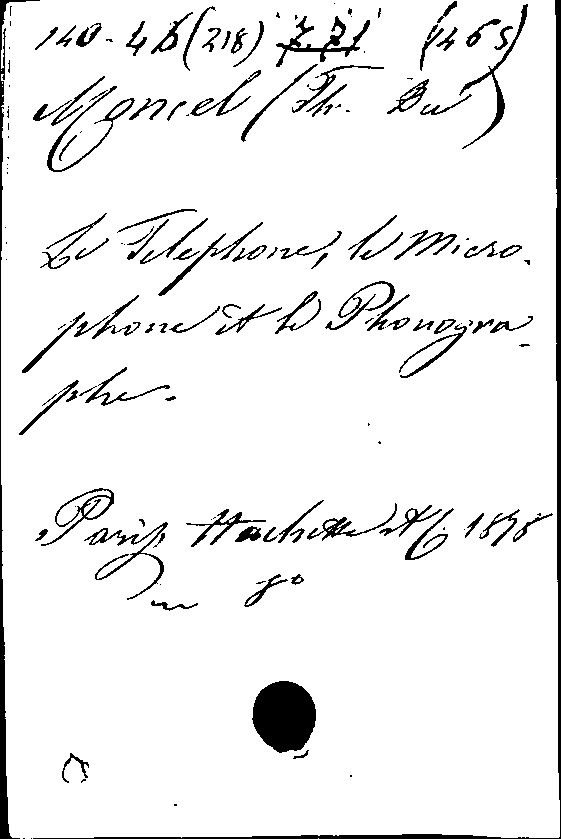 140-4B(218) (1465)
Moncel (Th. Du)
Le Telephone, le Micro-
phone et le Phonogra-
phe.
Paris Hachette et C. 1878
in 8°